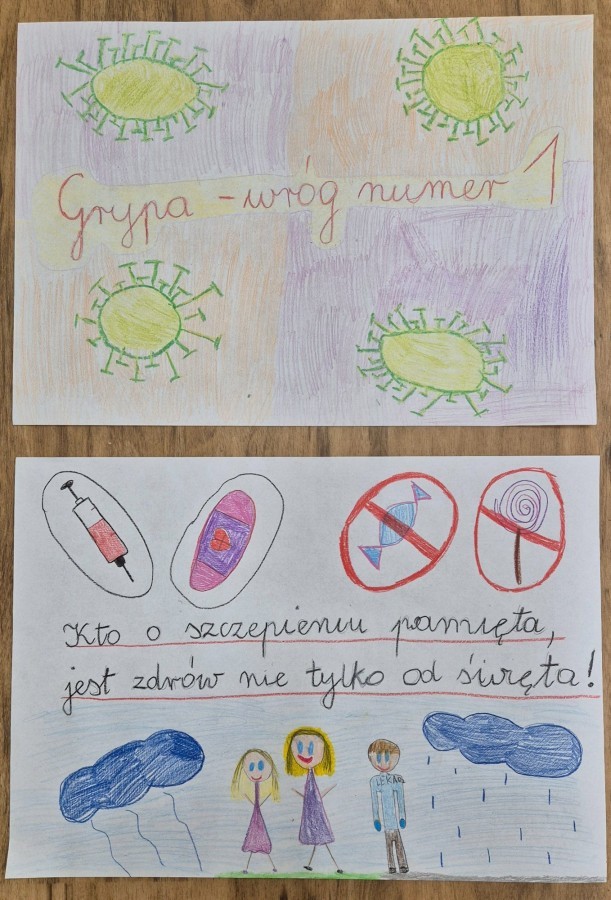 Grypa - wróg numer 1
Kto o szczepieniu pamięta,
jest zdrów nie tylko od święta!
LEKARZ